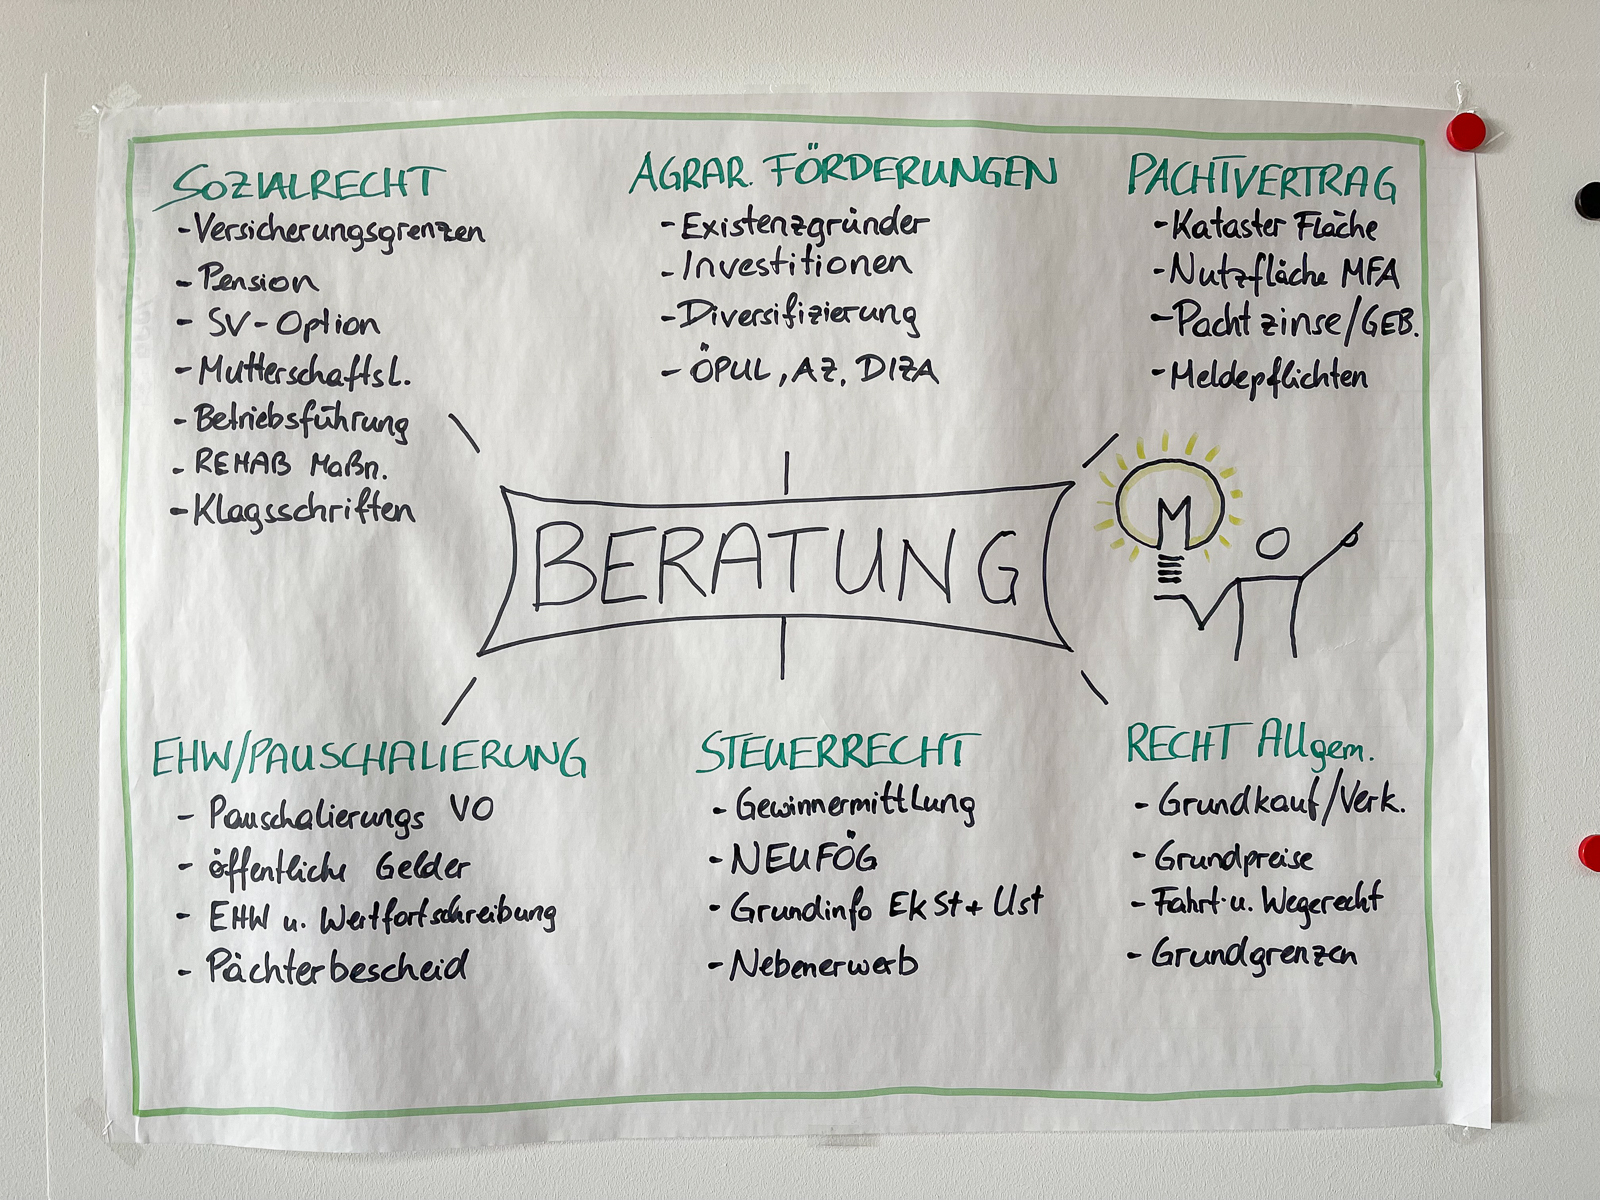 SOZIALRECHT
- Versicherungsgrenzen
- Pension
- SV-Option
- Mutterschaftsl.
- Betriebsführung
- REHAB Maßn.
- Klagsschriften
AGRAR. FÖRDERUNGEN
- Existenzgründer
- Investitionen
- Diversifizierung
- ÖPUL, AZ, DIZA
PACHTVERTRAG
- Kataster Fläche
- Nutzfläche MFA
- Pachtzinse/GEB.
- Meldepflichten
BERATUNG
M
EHW/PAUSCHALIERUNG
- Pauschalierungs VO
- öffentliche Gelder
- EHW u. Wertfortschreibung
- Pächterbescheid
STEUERRECHT
- Gewinnermittlung
- NEUFÖG
- Grundinfo EkSt + Ust
- Nebenerwerb
RECHT Allgem.
- Grundkauf/Verk.
- Grundpreise
- Fahrt- u. Wegerecht
- Grundgrenzen